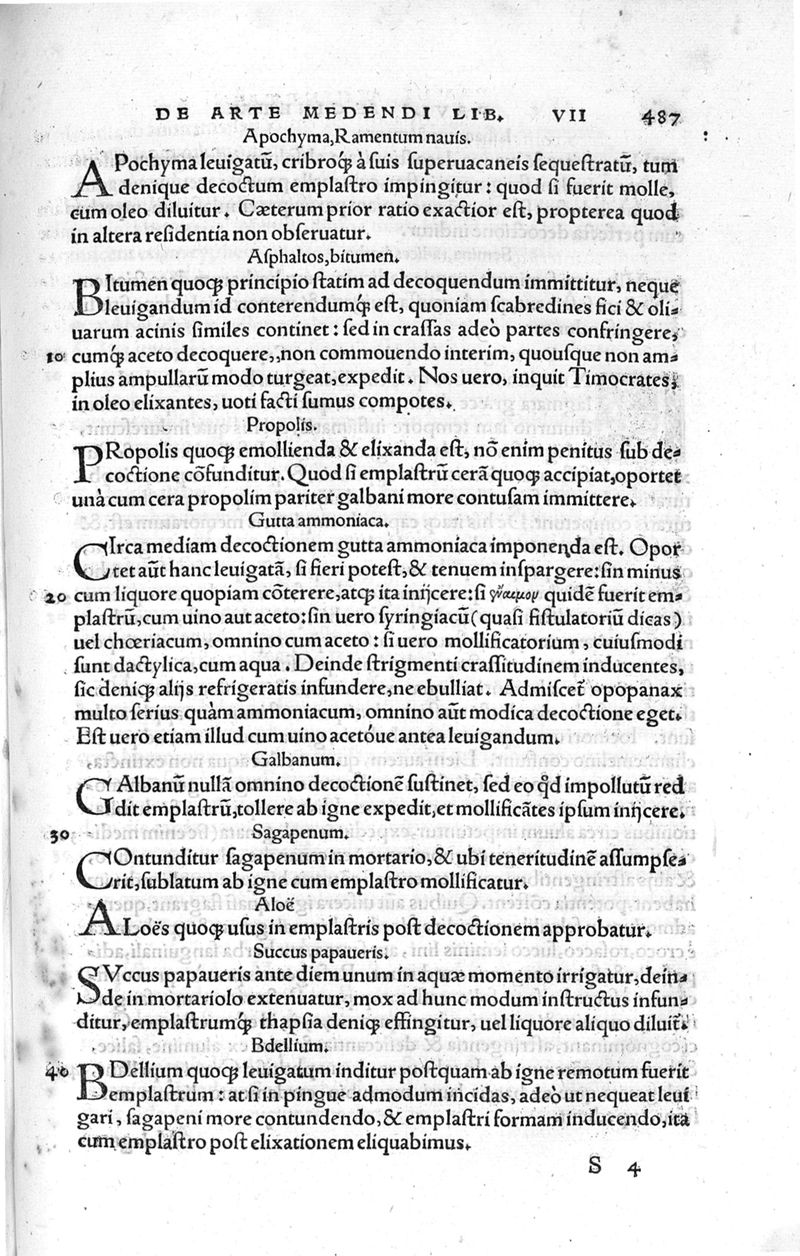 DE ARTE MEDENDI LIB. VII 487
Apochyma, Ramentum nauis.
APochyma leuigatū, cribroq́ꝫ à suis superuacaneis sequestratū, tum
denique decoctum emplastro impingitur: quod si fuerit molle,
cum oleo diluitur. Cæterum prior ratio exactior est, propterea quod
in altera residentia non obseruatur.
Asphaltos, bitumen.
BItumen quoqꝫ principio statim ad decoquendum immittitur, neque
leuigandum id conterendumq́ꝫ est, quoniam scabredines fici & oli-
uarum acinis similes continet: sed in crassas adeò partes confringere,
10 cumq́ꝫ aceto decoquere, non commouendo interim, quousque non am-
plius ampullarū modo turgeat, expedit. Nos uero, inquit Timocrates,
in oleo elixantes, uoti facti sumus compotes.
Propolis.
PRopolis quoqꝫ emollienda & elixanda est, nō enim penitus sub de-
coctione cōfunditur. Quod si emplastrū cerā quoqꝫ accipiat, oportet
unà cum cera propolim pariter galbani more contusam immittere.
Gutta ammoniaca.
CIrca mediam decoctionem gutta ammoniaca imponenda est. Opor
tet aūt hanc leuigatā, si fieri potest, & tenuem inspargere: sin minus
20 cum liquore quopiam cōterere, atqꝫ ita inijcere: si ἔναιμον quidē fuerit em-
plastrū, cum uino aut aceto: sin uero syringiacū (quasi fistulatoriū dicas)
uel chœriacum, omnino cum aceto: si uero mollificatorium, cuiusmodi
sunt dactylica, cum aqua. Deinde strigmenti crassitudinem inducentes,
sic deniqꝫ alijs refrigeratis infundere, ne ebulliat. Admiscet̄ opopanax
multo serius quàm ammoniacum, omnino aūt modica decoctione eget.
Est uero etiam illud cum uino acetóue antea leuigandum.
Galbanum.
GAlbanū nullā omnino decoctionē sustinet, sed eo qđ impollutū red
dit emplastrū, tollere ab igne expedit, et mollificātes ipsum inijcere.
30 Sagapenum.
COntunditur sagapenum in mortario, & ubi teneritudinē assumpse-
rit, sublatum ab igne cum emplastro mollificatur.
Aloë
ALoës quoqꝫ usus in emplastris post decoctionem approbatur.
Succus papaueris.
SVccus papaueris ante diem unum in aquæ momento irrigatur, dein-
de in mortariolo extenuatur, mox ad hunc modum instructus infun-
ditur, emplastrumq́ꝫ thapsia deniqꝫ effingitur, uel liquore aliquo diluit̄.
Bdellium.
40 BDellium quoqꝫ leuigatum inditur postquam ab igne remotum fuerit
emplastrum: at si in pingue admodum incidas, adeò ut nequeat leui
gari, sagapeni more contundendo, & emplastri formam inducendo, ita
cum emplastro post elixationem eliquabimus.
S 4